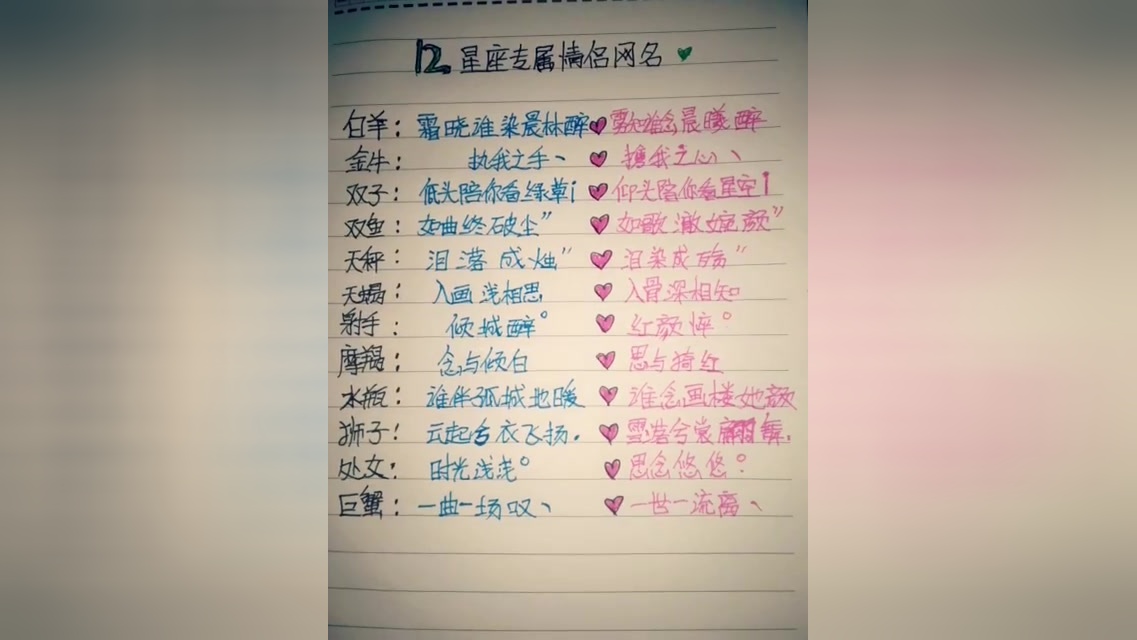 12星座专属情侣网名
白羊：霜晓谁染晨林醉 雾知谁念晨曦醉
金牛：执我之手、 携我之心、
双子：低头陪你看绿草i 仰头陪你看星空i
双鱼：如曲终破尘” 如歌潵婉颜”
天秤：泪落成烛” 泪染成殇”
天蝎：入画浅相思 入骨深相知
射手：倾城醉° 红颜悴°
摩羯：念与倾白 思与掎红
水瓶：谁伴孤城地暖 谁念画楼她颜
狮子！云起兮衣飞扬. 雪落兮裳翩舞.
处女：时光浅浅° 思念悠悠°
巨蟹：一曲一场叹、 一世一流离、